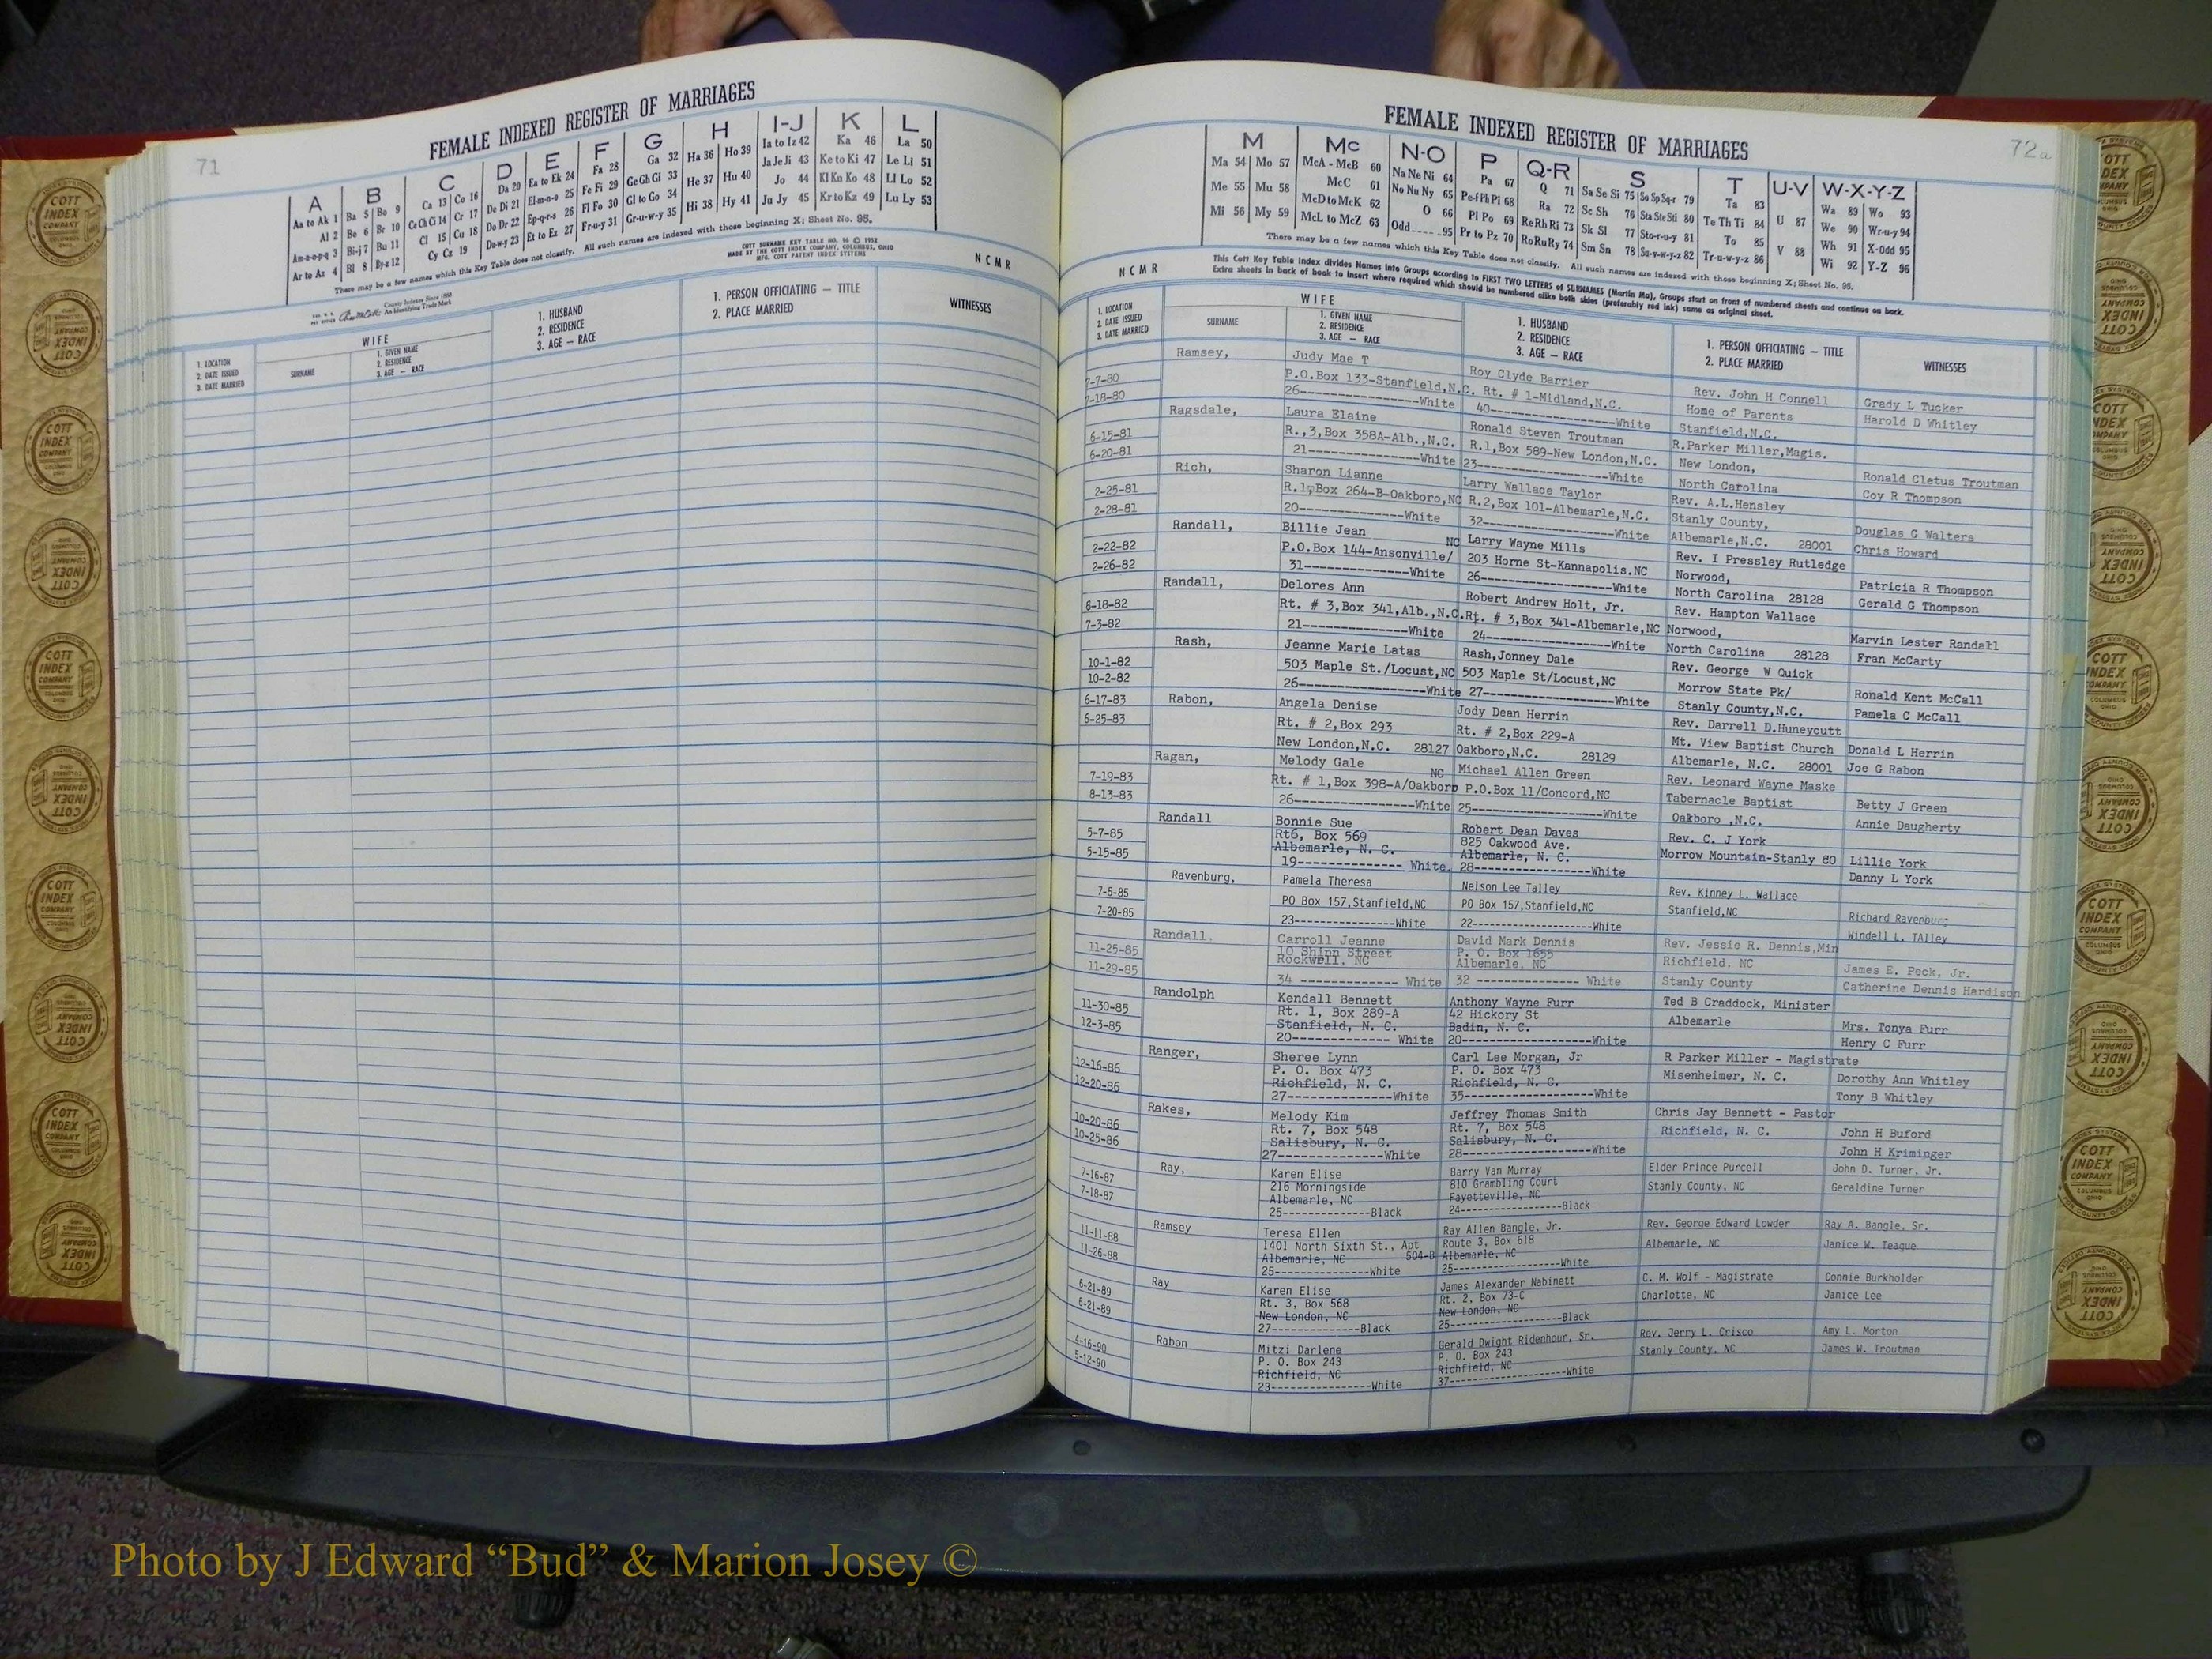 71
FEMALE INDEXED REGISTER OF MARRIAGES
A B C D E F G H I-J K L
Aa to Ak 1 Ba 5 Bo 9 Ca 13 Co 16 Da 20 Ea to Ek 24 Fa 28 Ga 32 Ha 36 Ho 39 Ia to Iz 42 Ka 46 La 50
Al 2 Be 6 Br 10 Ce Ch Ci 14 Cr 17 De Di 21 El-m-n-o 25 Fe Fi 29 Ge Gh Gi 33 He 37 Hu 40 Ja Je Ji 43 Ke to Ki 47 Le Li 51
Am-n-o-p-q 3 Bi-j 7 Bu 11 Cl 15 Cu 18 Do Dr 22 Ep-q-r-s 26 Fl Fo 30 Gl to Go 34 Hi 38 Hy 41 Jo 44 Kl Kn Ko 48 Ll Lo 52
Ar to Az 4 Bl 8 By-z 12 Cy Cz 19 Du-w-y 23 Et to Ez 27 Fr-u-y 31 Gr-u-w-y 35 Ju Jy 45 Kr to Kz 49 Lu Ly 53
There may be a few names which this Key Table does not classify. All such names are indexed with those beginning X; Sheet No. 95.
COTT SURNAME KEY TABLE NO. 96 © 1952
MADE BY THE COTT INDEX COMPANY, COLUMBUS, OHIO
MFG. COTT PATENT INDEX SYSTEMS
County Indexes Since 1888
An Identifying Trade Mark
N C M R
1. LOCATION
2. DATE ISSUED
3. DATE MARRIED
WIFE
SURNAME
1. GIVEN NAME
2. RESIDENCE
3. AGE — RACE
1. HUSBAND
2. RESIDENCE
3. AGE — RACE
1. PERSON OFFICIATING — TITLE
2. PLACE MARRIED
WITNESSES
72a
FEMALE INDEXED REGISTER OF MARRIAGES
M Mc N-O P Q-R S T U-V W-X-Y-Z
Ma 54 Mo 57 McA - McB 60 Na Ne Ni 64 Pa 67 Q 71 Sa Se Si 75 So Sp Sq-r 79 Ta 83 U 87 Wa 89 Wo 93
Me 55 Mu 58 McC 61 No Nu Ny 65 Pe-f Ph Pi 68 Ra 72 Sc Sh 76 Sta Ste Sti 80 Te Th Ti 84 V 88 We 90 Wr-u-y 94
Mi 56 My 59 McD to McK 62 O 66 Pl Po 69 Re Rh Ri 73 Sk Sl 77 Sto-r-u-y 81 To 85 Wh 91 X-Odd 95
McL to McZ 63 Odd 95 Pr to Pz 70 Ro Ru Ry 74 Sm Sn 78 Su-v-w-y-z 82 Tr-u-w-y-z 86 Wi 92 Y-Z 96
There may be a few names which this Key Table does not classify. All such names are indexed with those beginning X; Sheet No. 95.
This Cott Key Table Index divides Names into Groups according to FIRST TWO LETTERS of SURNAMES (Martin Ma), Groups start on front of numbered sheets and continue on back.
Extra sheets in back of book to insert where required which should be numbered alike both sides (preferably red ink) same as original sheet.
N C M R
1. LOCATION
2. DATE ISSUED
3. DATE MARRIED
WIFE
SURNAME
1. GIVEN NAME
2. RESIDENCE
3. AGE — RACE
1. HUSBAND
2. RESIDENCE
3. AGE — RACE
1. PERSON OFFICIATING — TITLE
2. PLACE MARRIED
WITNESSES
Ramsey, Judy Mae T Roy Clyde Barrier Rev. John H Connell Grady L Tucker
7-7-80 P.O.Box 133-Stanfield,N.C. Rt. # 1-Midland,N.C. Home of Parents Harold D Whitley
7-18-80 26---White 40---White Stanfield,N.C.
Ragsdale, Laura Elaine Ronald Steven Troutman R.Parker Miller,Magis.
6-15-81 R.,3,Box 358A-Alb.,N.C. R.1,Box 589-New London,N.C. New London, Ronald Cletus Troutman
6-20-81 21---White 23---White North Carolina Coy R Thompson
Rich, Sharon Lianne Larry Wallace Taylor Rev. A.L.Hensley
2-25-81 R.1,Box 264-B-Oakboro,NC R.2,Box 101-Albemarle,N.C. Stanly County, Douglas G Walters
2-28-81 20---White 32---White Albemarle,N.C. 28001 Chris Howard
Randall, Billie Jean Larry Wayne Mills Rev. I Pressley Rutledge
2-22-82 P.O.Box 144-Ansonville/ NC 203 Horne St-Kannapolis.NC Norwood, Patricia R Thompson
2-26-82 31---White 26---White North Carolina 28128 Gerald G Thompson
Randall, Delores Ann Robert Andrew Holt, Jr. Rev. Hampton Wallace
6-18-82 Rt. # 3,Box 341,Alb.,N.C. Rt. # 3,Box 341-Albemarle,NC Norwood, Marvin Lester Randall
7-3-82 21---White 24---White North Carolina 28128 Fran McCarty
Rash, Jeanne Marie Latas Rash,Jonney Dale Rev. George W Quick
10-1-82 503 Maple St./Locust,NC 503 Maple St/Locust,NC Morrow State Pk/ Ronald Kent McCall
10-2-82 26---White 27---White Stanly County,N.C. Pamela C McCall
6-17-83 Rabon, Angela Denise Jody Dean Herrin Rev. Darrell D.Huneycutt
6-25-83 Rt. # 2,Box 293 Rt. # 2,Box 229-A Mt. View Baptist Church Donald L Herrin
New London,N.C. 28127 Oakboro,N.C. 28129 Albemarle, N.C. 28001 Joe G Rabon
Ragan, Melody Gale Michael Allen Green Rev. Leonard Wayne Maske
7-19-83 Rt. # 1,Box 398-A/Oakboro NC P.O.Box 11/Concord,NC Tabernacle Baptist Betty J Green
8-13-83 26---White 25---White Oakboro ,N.C. Annie Daugherty
Randall Bonnie Sue Robert Dean Daves Rev. C. J York
5-7-85 Rt6, Box 569 825 Oakwood Ave. Morrow Mountain-Stanly CO Lillie York
5-15-85 Albemarle, N. C. Albemarle, N. C. Danny L York
19--- White 28---White
Ravenburg, Pamela Theresa Nelson Lee Talley Rev. Kinney L. Wallace
7-5-85 PO Box 157,Stanfield,NC PO Box 157,Stanfield,NC Stanfield,NC Richard Ravenburg
7-20-85 23---White 22---White Windell L. TAlley
Randall. Carroll Jeanne David Mark Dennis Rev. Jessie R. Dennis,Min
11-25-85 10 Shipp Street P. O. Box 1655 Richfield, NC James E. Peck, Jr.
11-29-85 Rockwell, NC Albemarle, NC Stanly County Catherine Dennis Hardison
34 --- White 32 --- White
Randolph Kendall Bennett Anthony Wayne Furr Ted B Craddock, Minister
11-30-85 Rt. 1, Box 289-A 42 Hickory St Albemarle Mrs. Tonya Furr
12-3-85 Stanfield, N. C. Badin, N. C. Henry C Furr
20--- White 20---White
Ranger, Sheree Lynn Carl Lee Morgan, Jr R Parker Miller - Magistrate
12-16-86 P. O. Box 473 P. O. Box 473 Misenheimer, N. C. Dorothy Ann Whitley
12-20-86 Richfield, N. C. Richfield, N. C. Tony B Whitley
27---White 35---White
Rakes, Melody Kim Jeffrey Thomas Smith Chris Jay Bennett - Pastor
10-20-86 Rt. 7, Box 548 Rt. 7, Box 548 Richfield, N. C. John H Buford
10-25-86 Salisbury, N. C. Salisbury, N. C. John H Kriminger
27---White 28---White
Ray, Karen Elise Barry Van Murray Elder Prince Purcell John D. Turner, Jr.
7-16-87 216 Morningside 810 Grambling Court Stanly County, NC Geraldine Turner
7-18-87 Albemarle, NC Fayetteville, NC
25---Black 24---Black
Ramsey Teresa Ellen Ray Allen Bangle, Jr. Rev. George Edward Lowder Ray A. Bangle, Sr.
11-11-88 1401 North Sixth St., Apt Route 3, Box 618 Albemarle, NC Janice W. Teague
11-26-88 Albemarle, NC 504-B Albemarle, NC
25---White 25---White
Ray Karen Elise James Alexander Nabinett C. M. Wolf - Magistrate Connie Burkholder
6-21-89 Rt. 3, Box 568 Rt. 2, Box 73-C Charlotte, NC Janice Lee
6-21-89 New London, NC New London, NC
27---Black 25---Black
Rabon Mitzi Darlene Gerald Dwight Ridenhour, Sr. Rev. Jerry L. Crisco Amy L. Morton
4-16-90 P. O. Box 243 P. O. Box 243 Stanly County, NC James W. Troutman
5-12-90 Richfield, NC Richfield, NC
23---White 37---White
COTT INDEX COMPANY COLUMBUS OHIO
Photo by J Edward “Bud” & Marion Josey ©